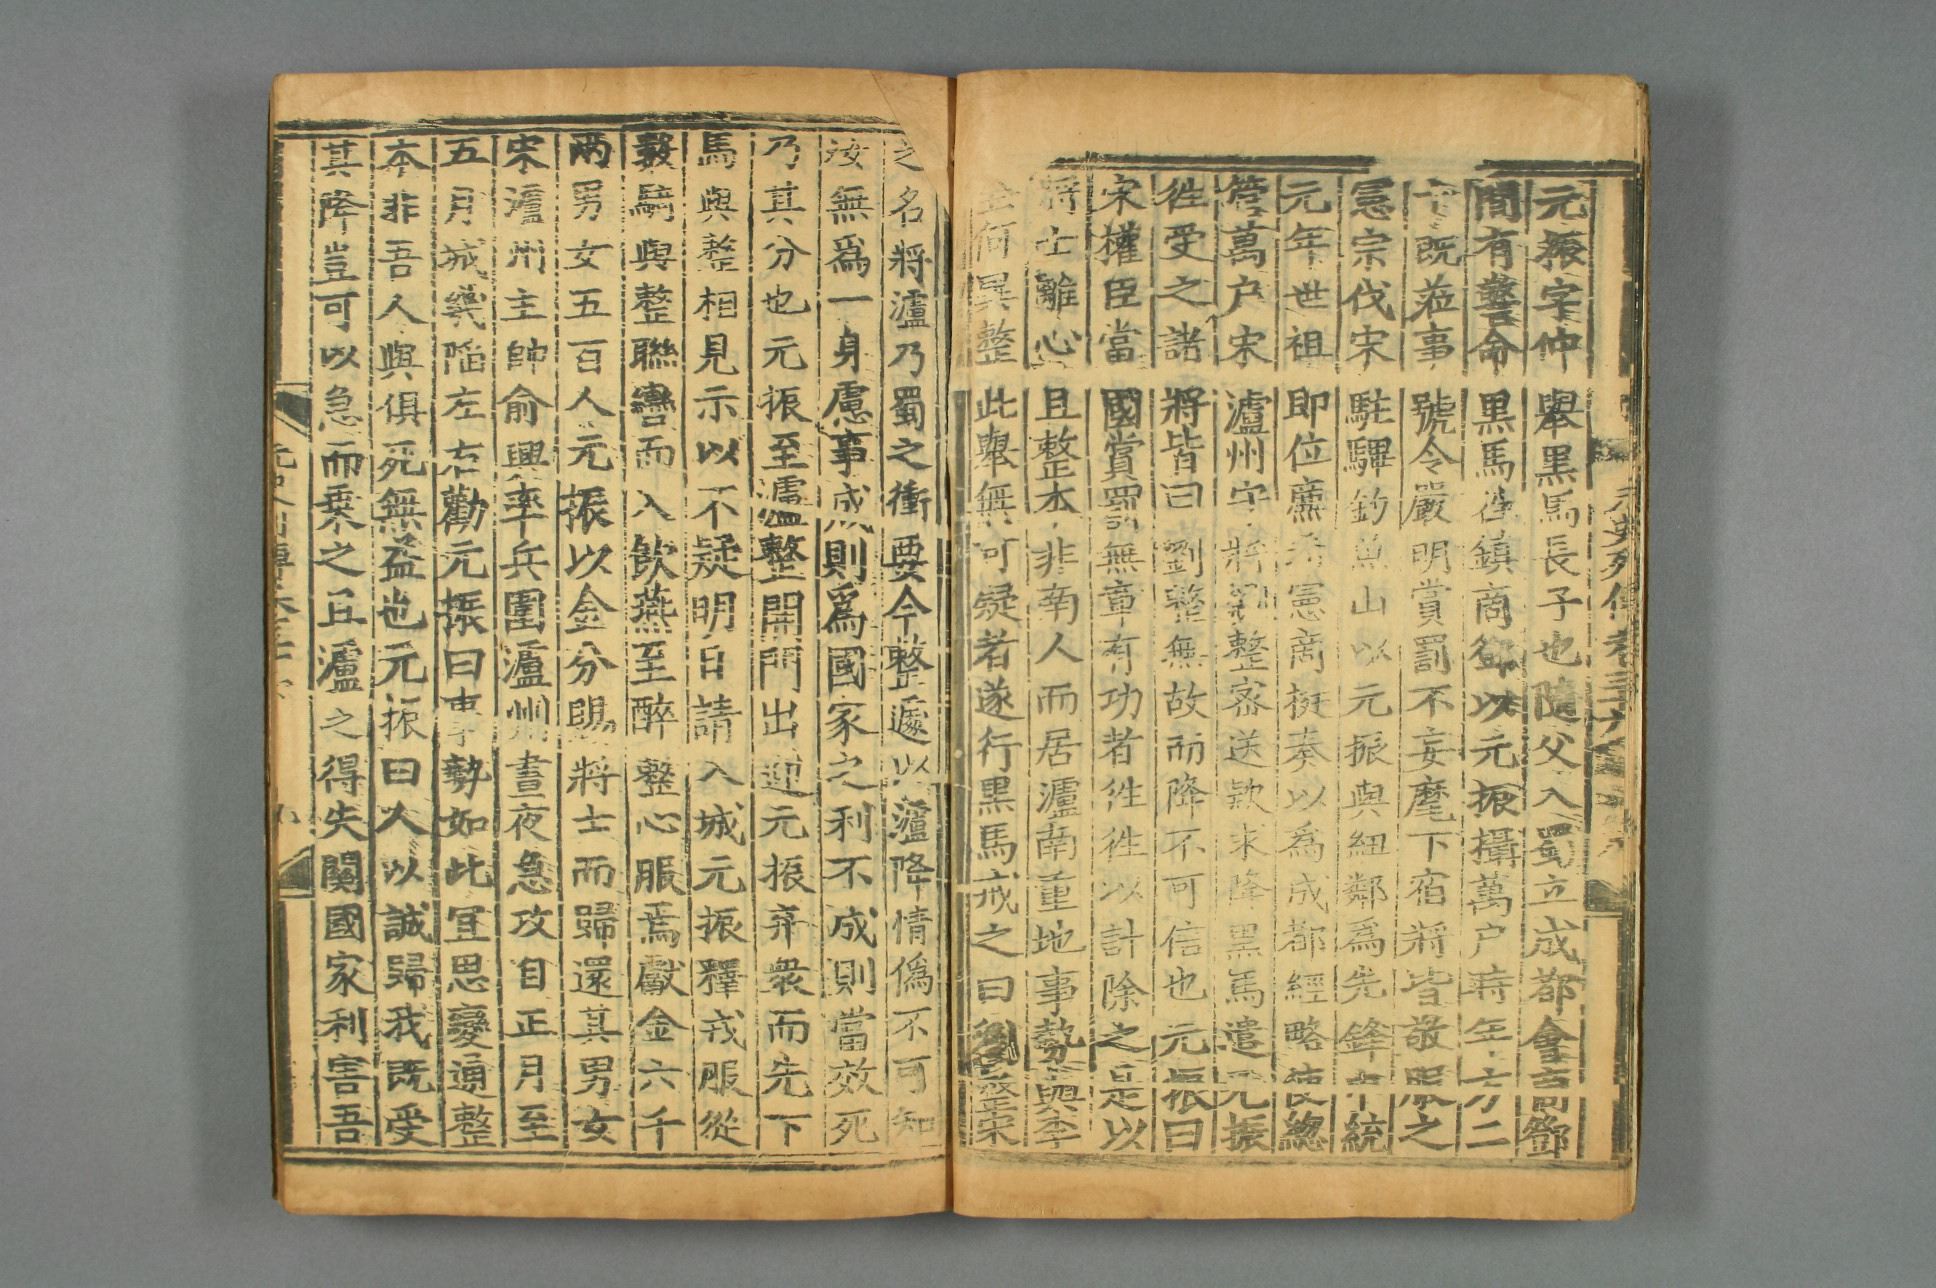 元振字仲舉黑馬長子也隨父入蜀立成都會商鄧
間有警命黑馬往鎮商鄧以元振攝萬户時年方二
十既蒞事號令嚴明賞罰不妄麾下宿將皆敬服之
憲宗伐宋駐驆釣魚山以元振與紐鄰爲先鋒中統
元年世祖即位廉希憲商挺奏以爲成都經略使總
管萬户宋瀘州守將劉整密送款求降黑馬遣元振
往受之諸將皆曰劉整無故而降不可信也元振曰
宋權臣當國賞罰無章有功者往往以計除之是以
將士離心且整本非南人而居瀘南重地事勢與李
全何異整此舉無可疑者遂行黑馬戒之曰劉整宋
之名將瀘乃蜀之衝要今整遽以瀘降情僞不可知
汝無爲一身慮事成則爲國家之利不成則當效死
乃其分也元振至瀘整開門出迎元振弃衆而先下
馬與整相見示以不疑明日請入城元振釋戎服從
數騎與整聯轡而入飲燕至醉整心服焉獻金六千
兩男女五百人元振以金分賜將士而歸還其男女
宋瀘州主帥俞興率兵圍瀘州晝夜急攻自正月至
五月城幾陷左右勸元振曰事勢如此宜思變通整
本非吾人與俱死無益也元振曰人以誠歸我既受
其降豈可以急而棄之且瀘之得失關國家利害吾